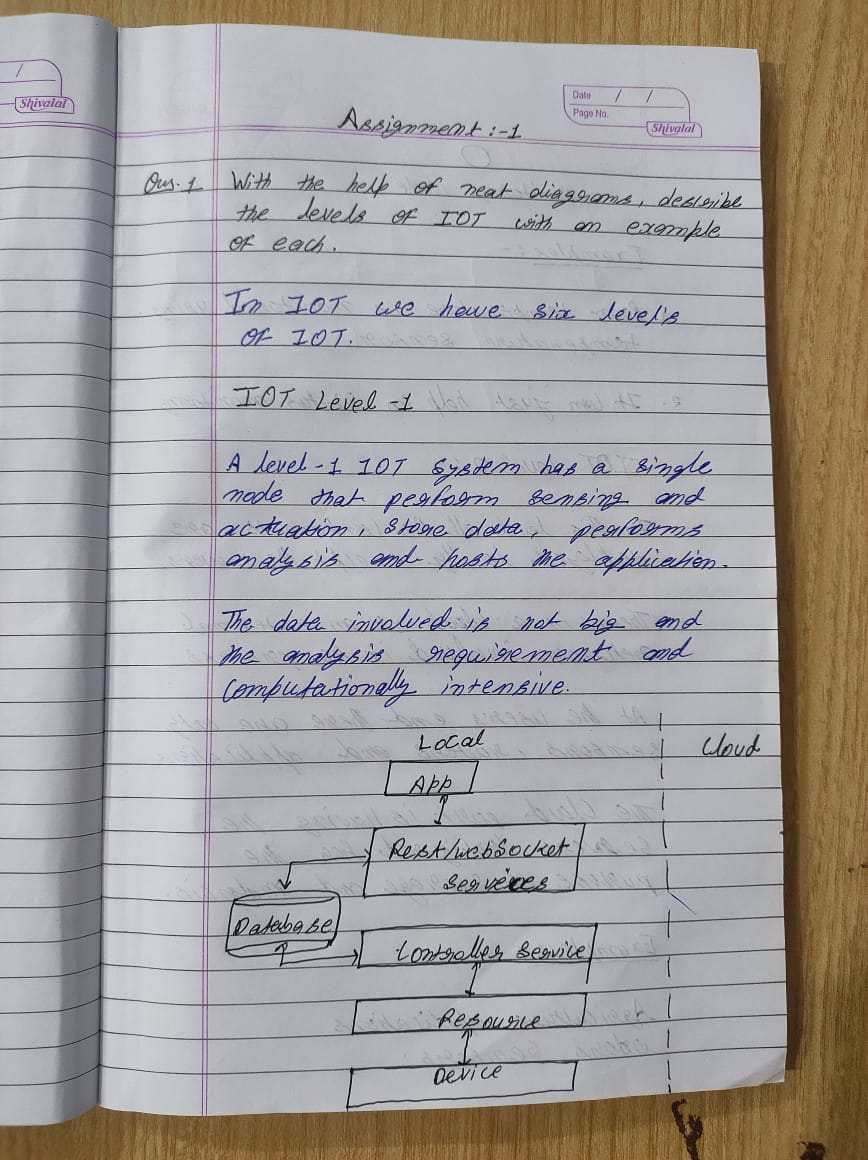 Shivalal
Date / /
Page No.
Shivalal
Assignment :-1
Qus. 1 With the help of neat diagrams, describe
the levels of IOT with an example
of each.
In IOT we have six level's
of IOT.
IOT Level -1
A level -1 IOT system has a single
node that perform sensing and
actuation, store data, performs
analysis and hosts the application.
The data involved is not big and
the analysis requirement and
computationally intensive.
Local
Cloud
App
Rest/WebSocket
Services
Database
Controller Service
Resource
Device